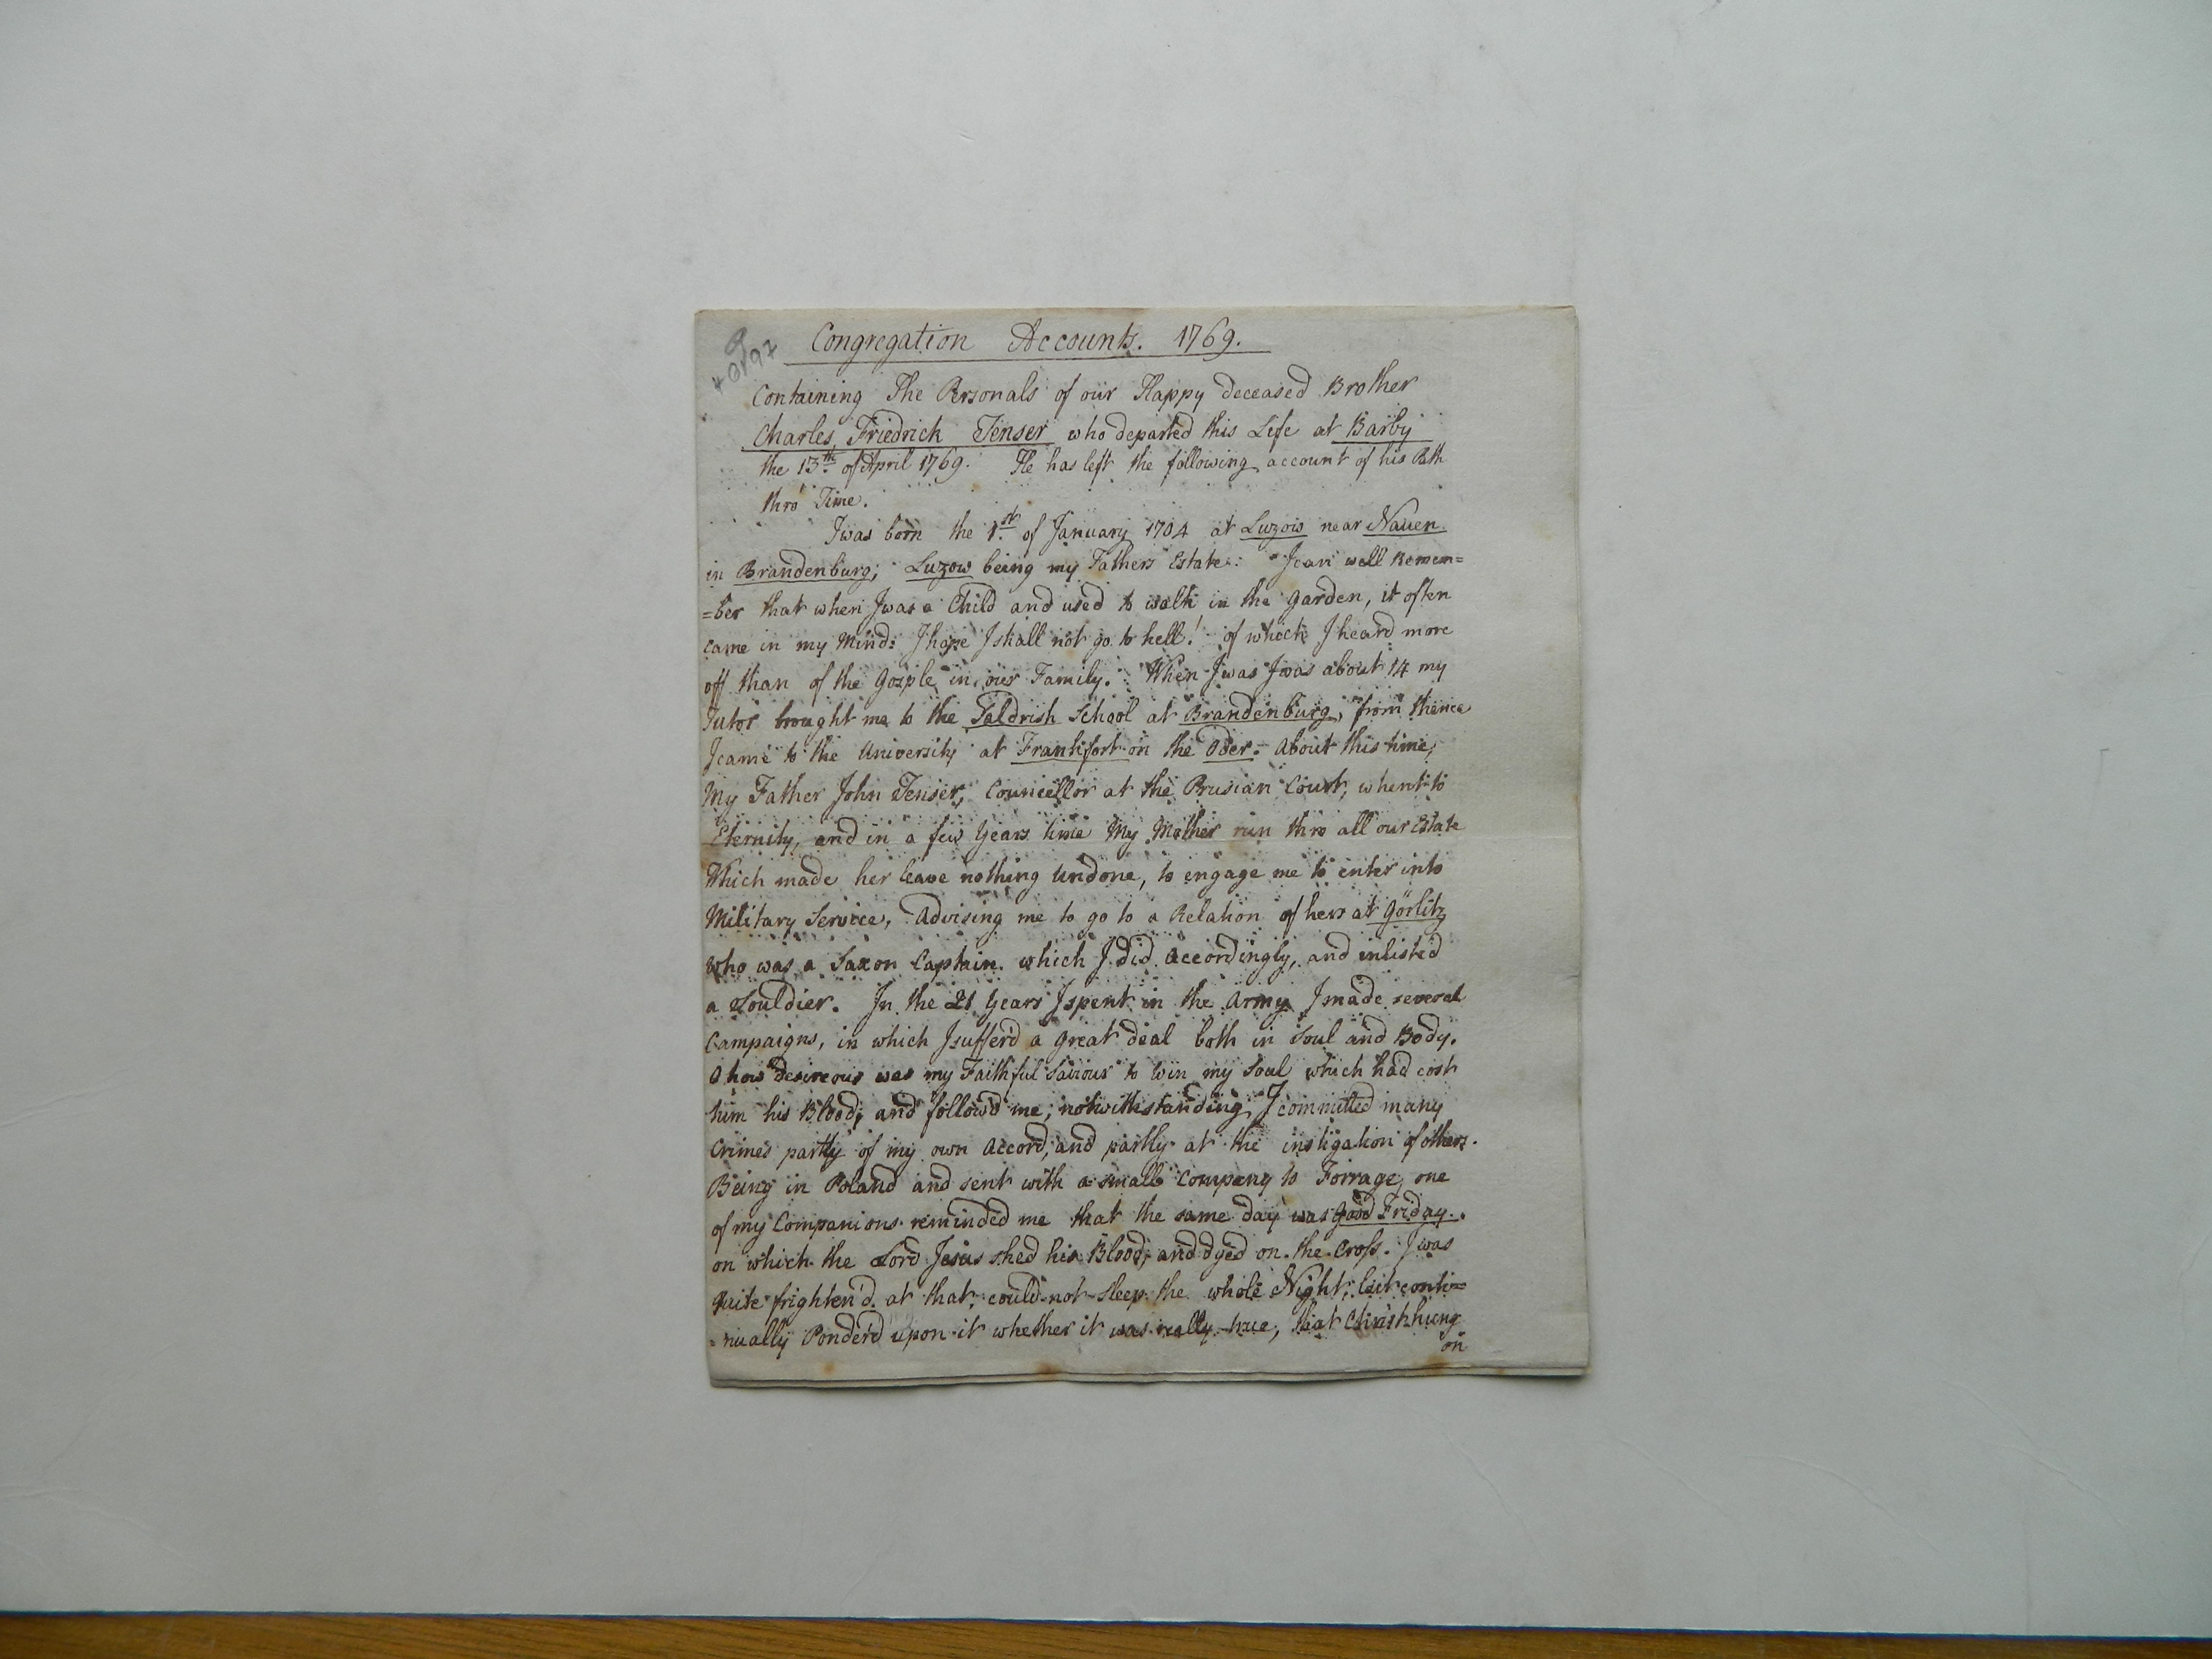 Congregation Accounts. 1769.
Containing The Personals of our Happy deceased Brother
Charles Friedrick Jenser who departed this Life at Barby
the 13th of April 1769. He has left the following account of his Path
thro' Time.
I was born the 1st of January 1704 at Luzow near Nauen
in Brandenburg; Luzow being my Fathers Estate. I can well Remem=
=ber that when I was a Child and used to walk in the Garden, it often
came in my Mind: I hope I shall not go to hell! of which I heard more
off than of the Gosple in our Family. When I was I was about 14 my
Tutor brought me to the Saldrish School at Brandenburg, from thence
I came to the University at Frankfort on the Oder. About this time,
My Father John Jenser, Councellor at the Prusian Court, whent to
Eternity, and in a few Years time My Mother run thro all our Estate
Which made her leave nothing undone, to engage me to enter into
Military Service, Advising me to go to a Relation of hers at Görlitz
who was a Saxon Captain. which I did accordingly, and inlisted
a Souldier. In the 21 Years I spent in the Army I made several
Campaigns, in which I suffer'd a great deal both in Soul and Body.
O how desireous was my Faithful Saviour to win my Soul which had cost
him his Blood; and follow'd me; notwithstanding I committed many
Crimes partly of my own Accord, and partly at the instigation of others.
Being in Poland and sent with a small Company to Forrage, one
of my Companions reminded me that the same day was Good Friday.
on which the Lord Jesus shed his Blood; and dyed on the Cross. I was
quite frighten'd at that, could not sleep the whole Night, but conti=
=nually Ponder'd upon it whether it was really true, that Christ hung
on